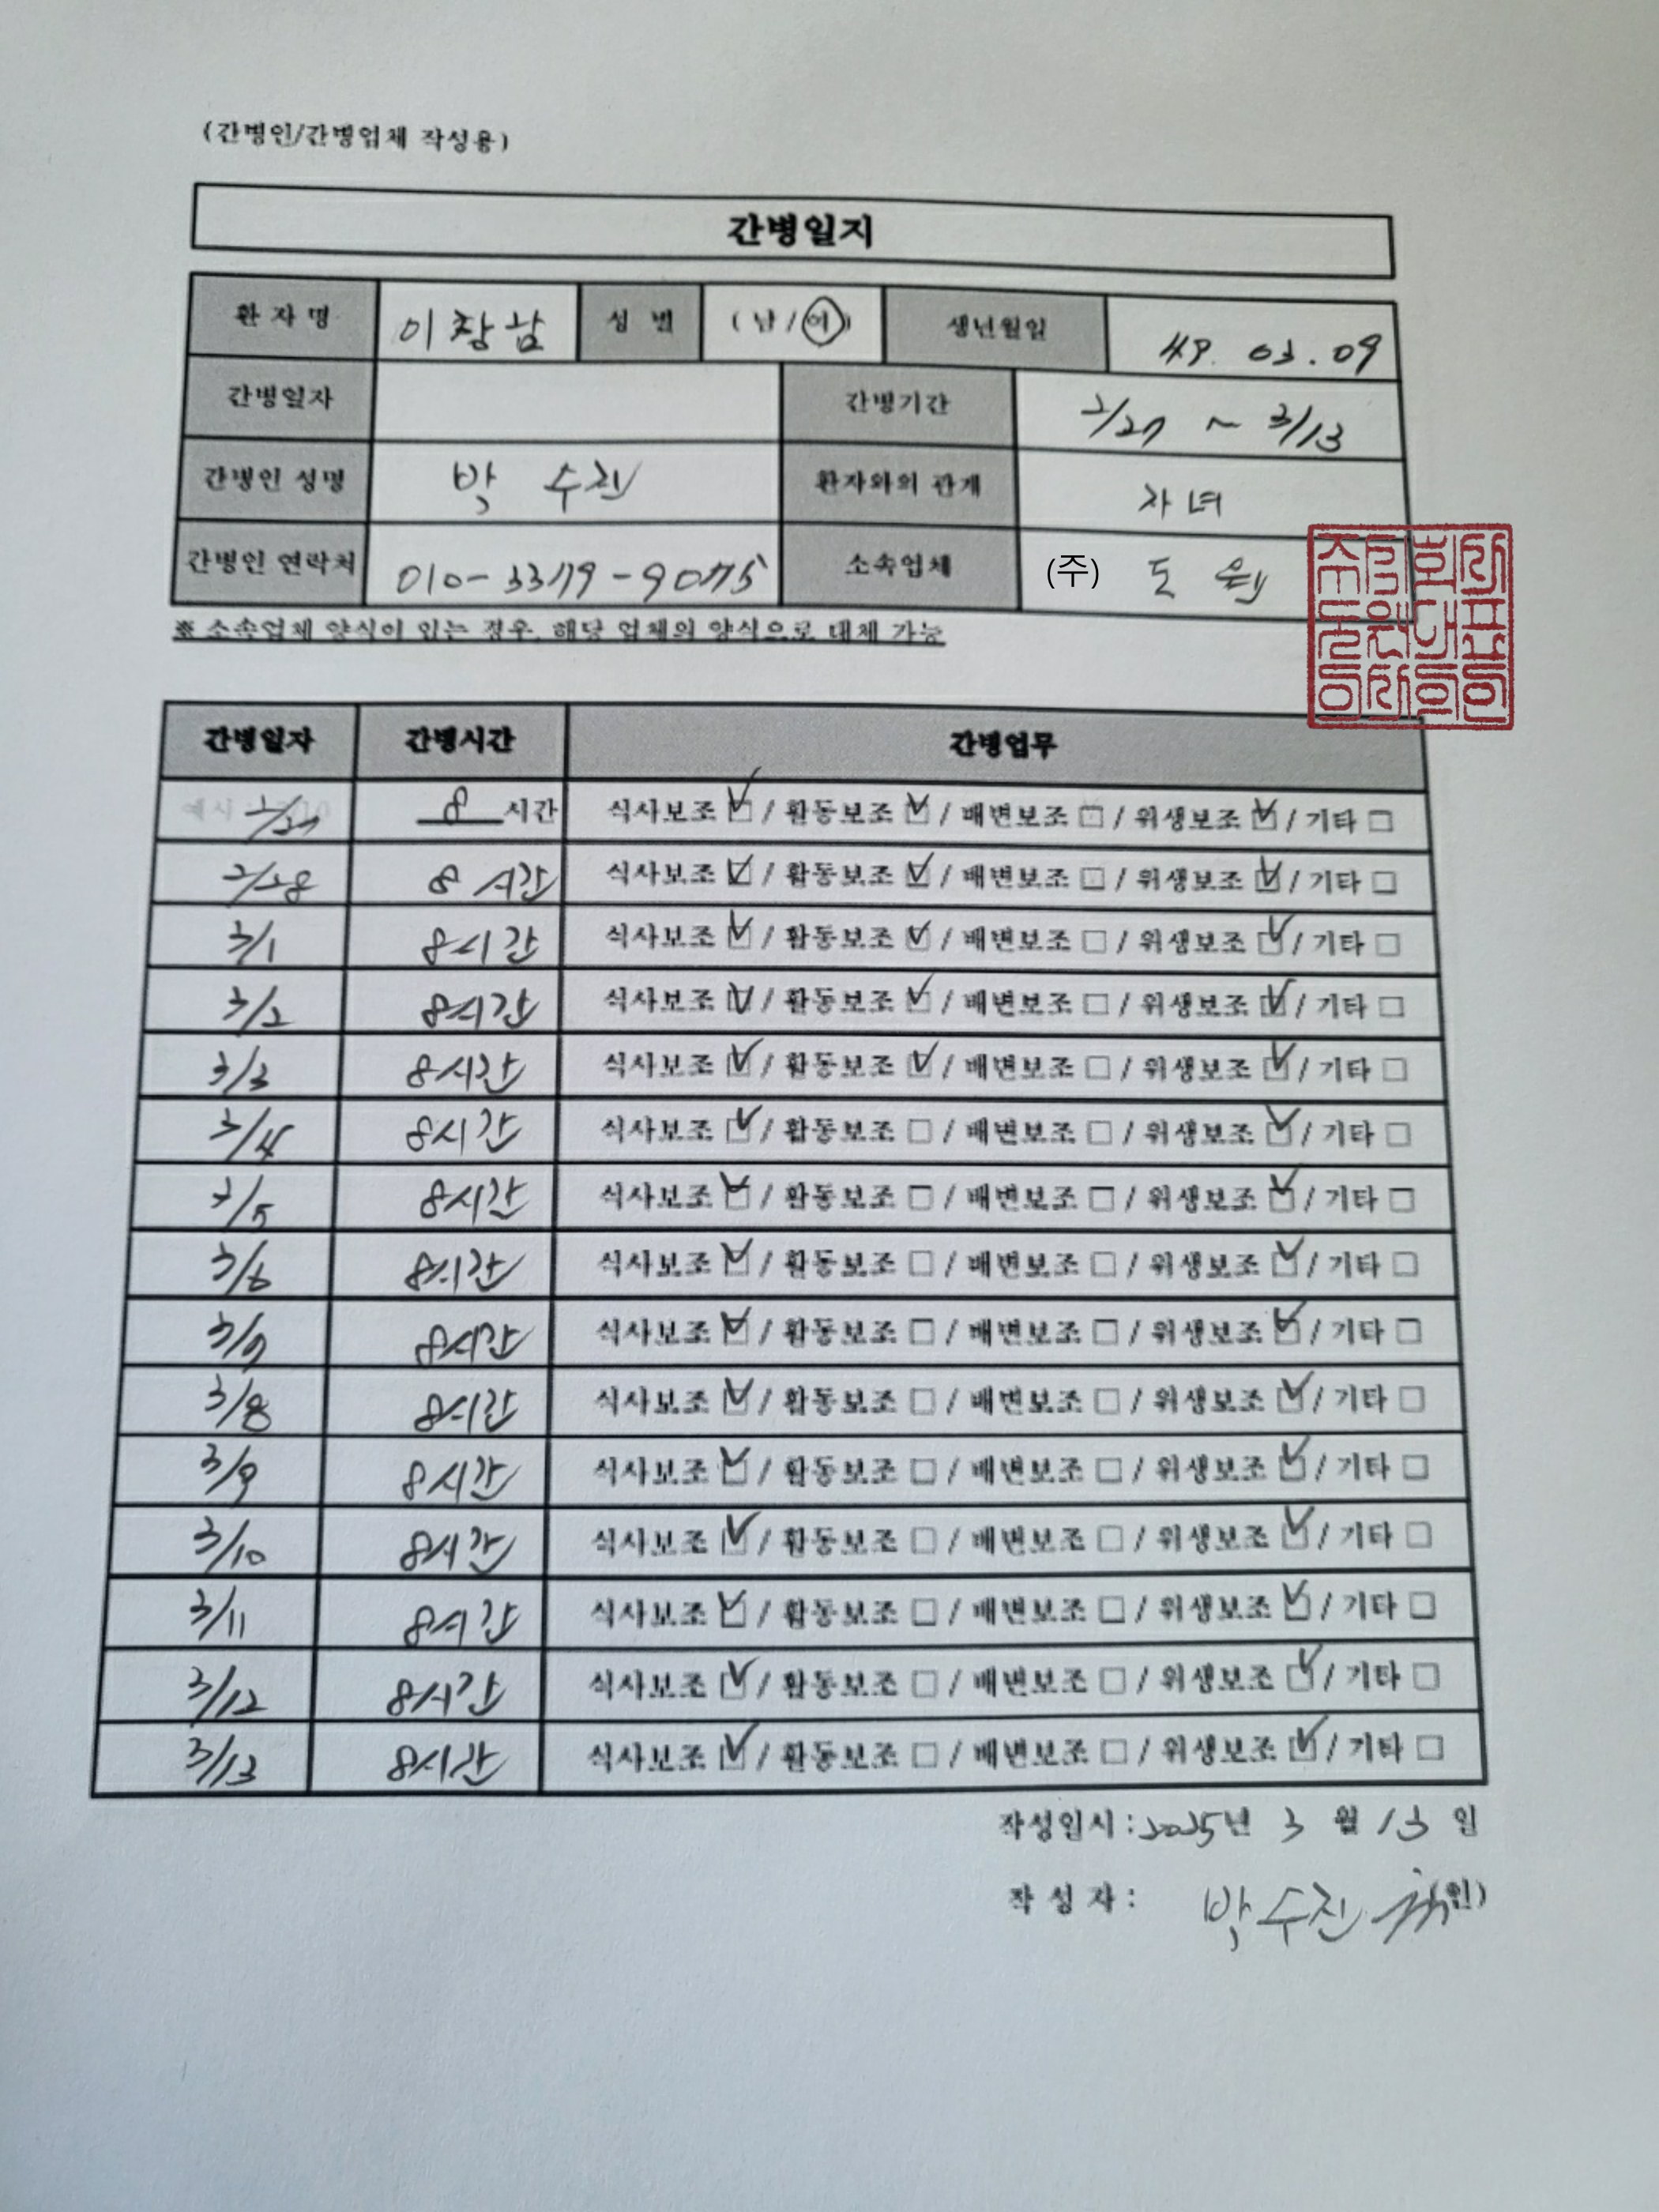 (간병인/간병업체 작성용)
간병일지
환 자 명 이창남 성 별 ( 남 / 여 ) 생년월일 49. 03. 09
간병일자 간병기간 2/27 ~ 3/13
간병인 성명 박 수진 환자와의 관계 자녀
간병인 연락처 010-3379-9075 소속업체 (주) 도원
※ 소속업체 양식이 있는 경우, 해당 업체의 양식으로 대체 가능
간병일자 간병시간 간병업무
2/27 8 시간 식사보조 ☑ / 활동보조 ☑ / 배변보조 □ / 위생보조 ☑ / 기타 □
2/28 8 시간 식사보조 ☑ / 활동보조 ☑ / 배변보조 □ / 위생보조 ☑ / 기타 □
3/1 8시간 식사보조 ☑ / 활동보조 ☑ / 배변보조 □ / 위생보조 ☑ / 기타 □
3/2 8시간 식사보조 ☑ / 활동보조 ☑ / 배변보조 □ / 위생보조 ☑ / 기타 □
3/3 8시간 식사보조 ☑ / 활동보조 ☑ / 배변보조 □ / 위생보조 ☑ / 기타 □
3/4 8시간 식사보조 ☑ / 활동보조 □ / 배변보조 □ / 위생보조 ☑ / 기타 □
3/5 8시간 식사보조 ☑ / 활동보조 □ / 배변보조 □ / 위생보조 ☑ / 기타 □
3/6 8시간 식사보조 ☑ / 활동보조 □ / 배변보조 □ / 위생보조 ☑ / 기타 □
3/7 8시간 식사보조 ☑ / 활동보조 □ / 배변보조 □ / 위생보조 ☑ / 기타 □
3/8 8시간 식사보조 ☑ / 활동보조 □ / 배변보조 □ / 위생보조 ☑ / 기타 □
3/9 8시간 식사보조 ☑ / 활동보조 □ / 배변보조 □ / 위생보조 ☑ / 기타 □
3/10 8시간 식사보조 ☑ / 활동보조 □ / 배변보조 □ / 위생보조 ☑ / 기타 □
3/11 8시간 식사보조 ☑ / 활동보조 □ / 배변보조 □ / 위생보조 ☑ / 기타 □
3/12 8시간 식사보조 ☑ / 활동보조 □ / 배변보조 □ / 위생보조 ☑ / 기타 □
3/13 8시간 식사보조 ☑ / 활동보조 □ / 배변보조 □ / 위생보조 ☑ / 기타 □
작성일시 : 2025년 3 월 13 일
작 성 자 : 박수진 (인)